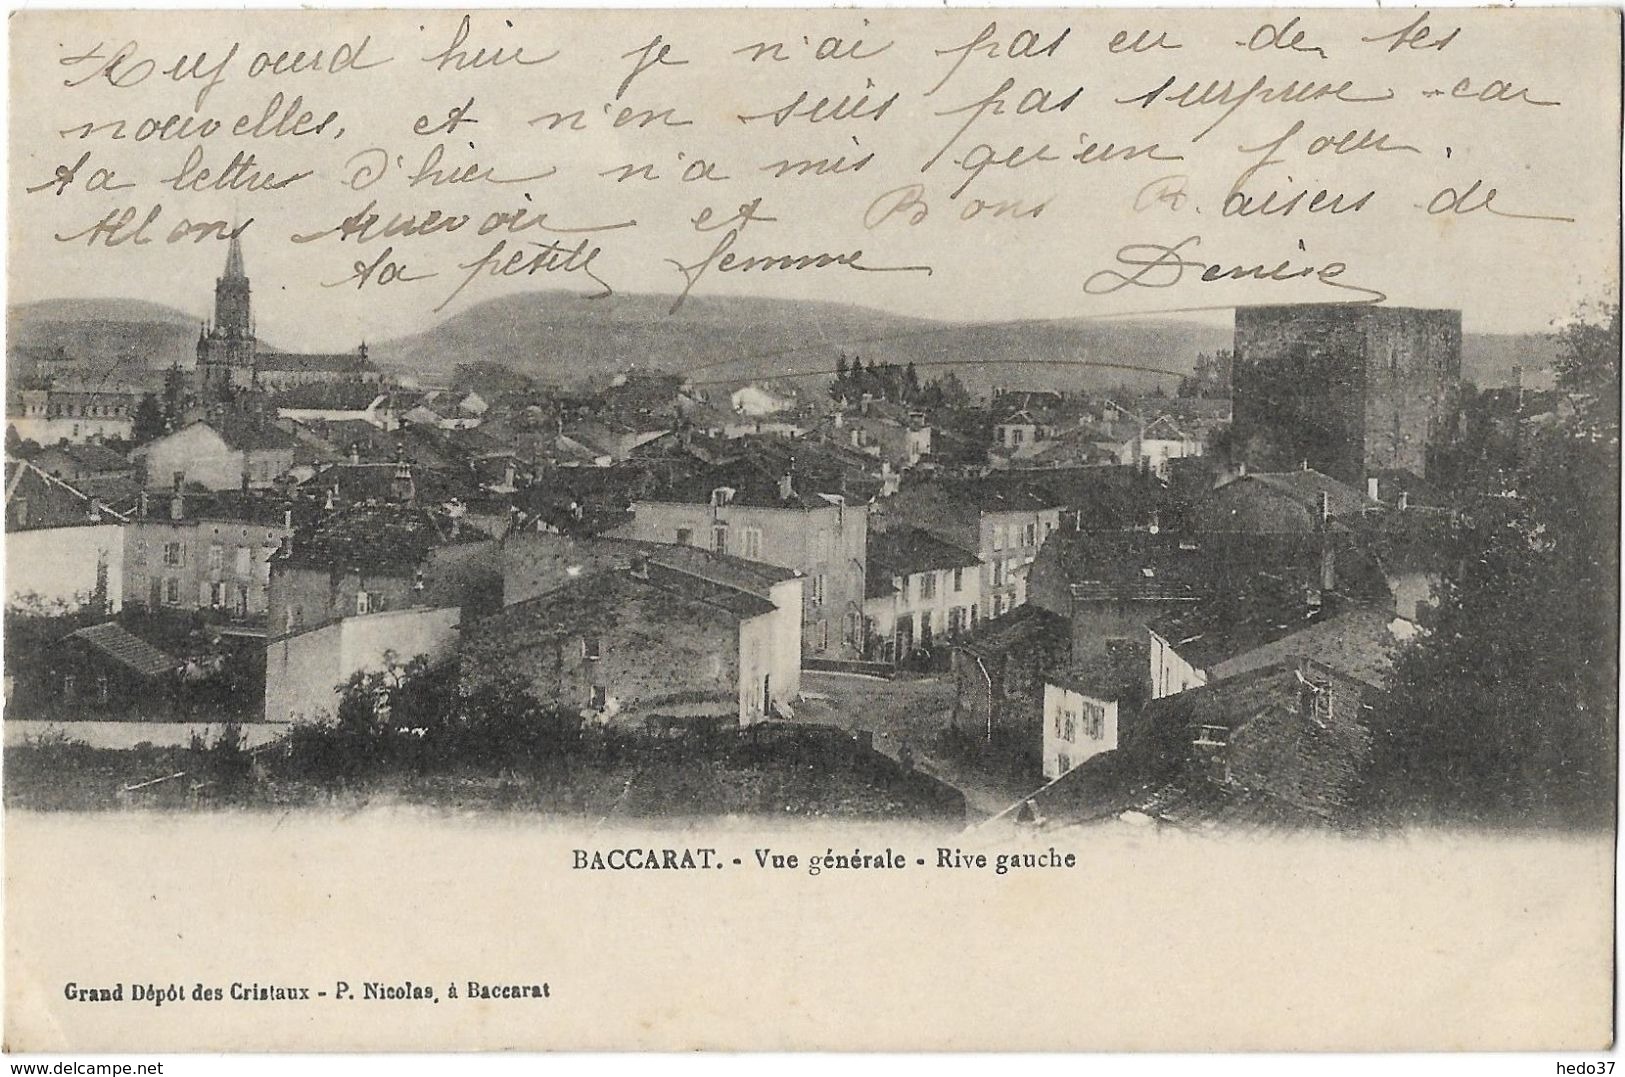 Aujourd hui je n'ai pas eu de tes
nouvelles, et n'en suis pas surprise car
ta lettre d'hier n'a mis qu'un jour.
Allons Aurevoir et Bons Baisers de
ta petite femme Denise
BACCARAT. - Vue générale - Rive gauche
Grand Dépôt des Cristaux - P. Nicolas, à Baccarat
www.delcampe.net
hedo37